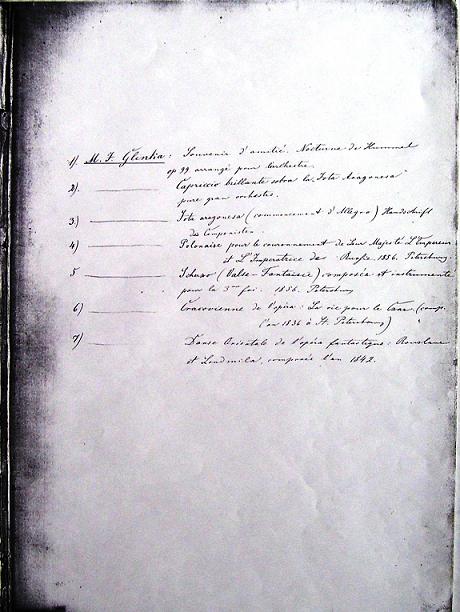 1). M. I. Glinka : Souvenir d'amitié. Nocturne de Hummel
op 99 arrangé pour l'orchestre.
2). Capriccio brillante sobra la Jota Aragonesa
pure gran orchestre.
3.) Jota aragonesa (commencement d'Allegro) Handschrift
des Componisten
4) Polonaise pour le couronnement de Leur Majesté L'Empereur
et L'Imperatrice des Russie. 1856. Petersburg.
5 Scherzo (Valse-Fantaisie) composée et instrumentée
pour la 3me foi. 1856. Petersburg
6) Cracovienne de l'opéra : La vie pour le Czar (comp.
l'an 1836 à St. Petersbourg)
7) Danse Orientale de l'opéra fantastique : Rouslane
et Loudmila, composée l'an 1842.